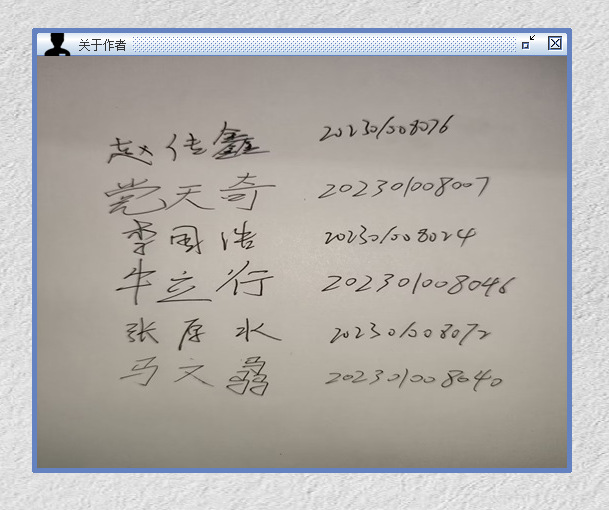 关于作者
赵佳鑫 202301008076
党天奇 202301008007
李国浩 202301008024
牛立行 202301008046
张原水 202301008072
马文骉 202301008040